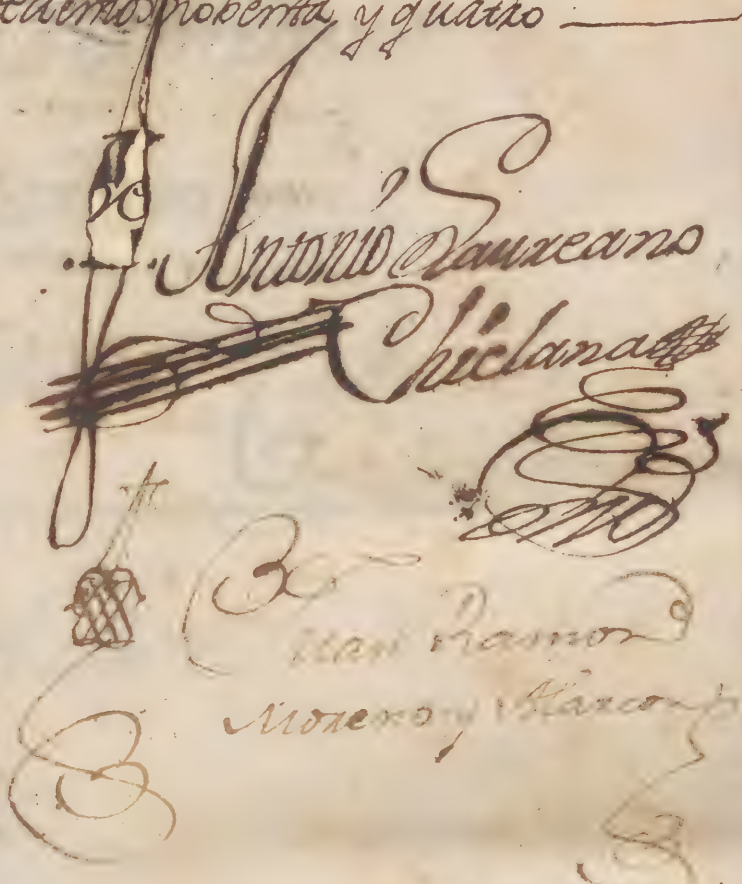 nobenta y quatro
Antonio Laureano
Chiclana
Juan Ramon
Moreno y Alarcon